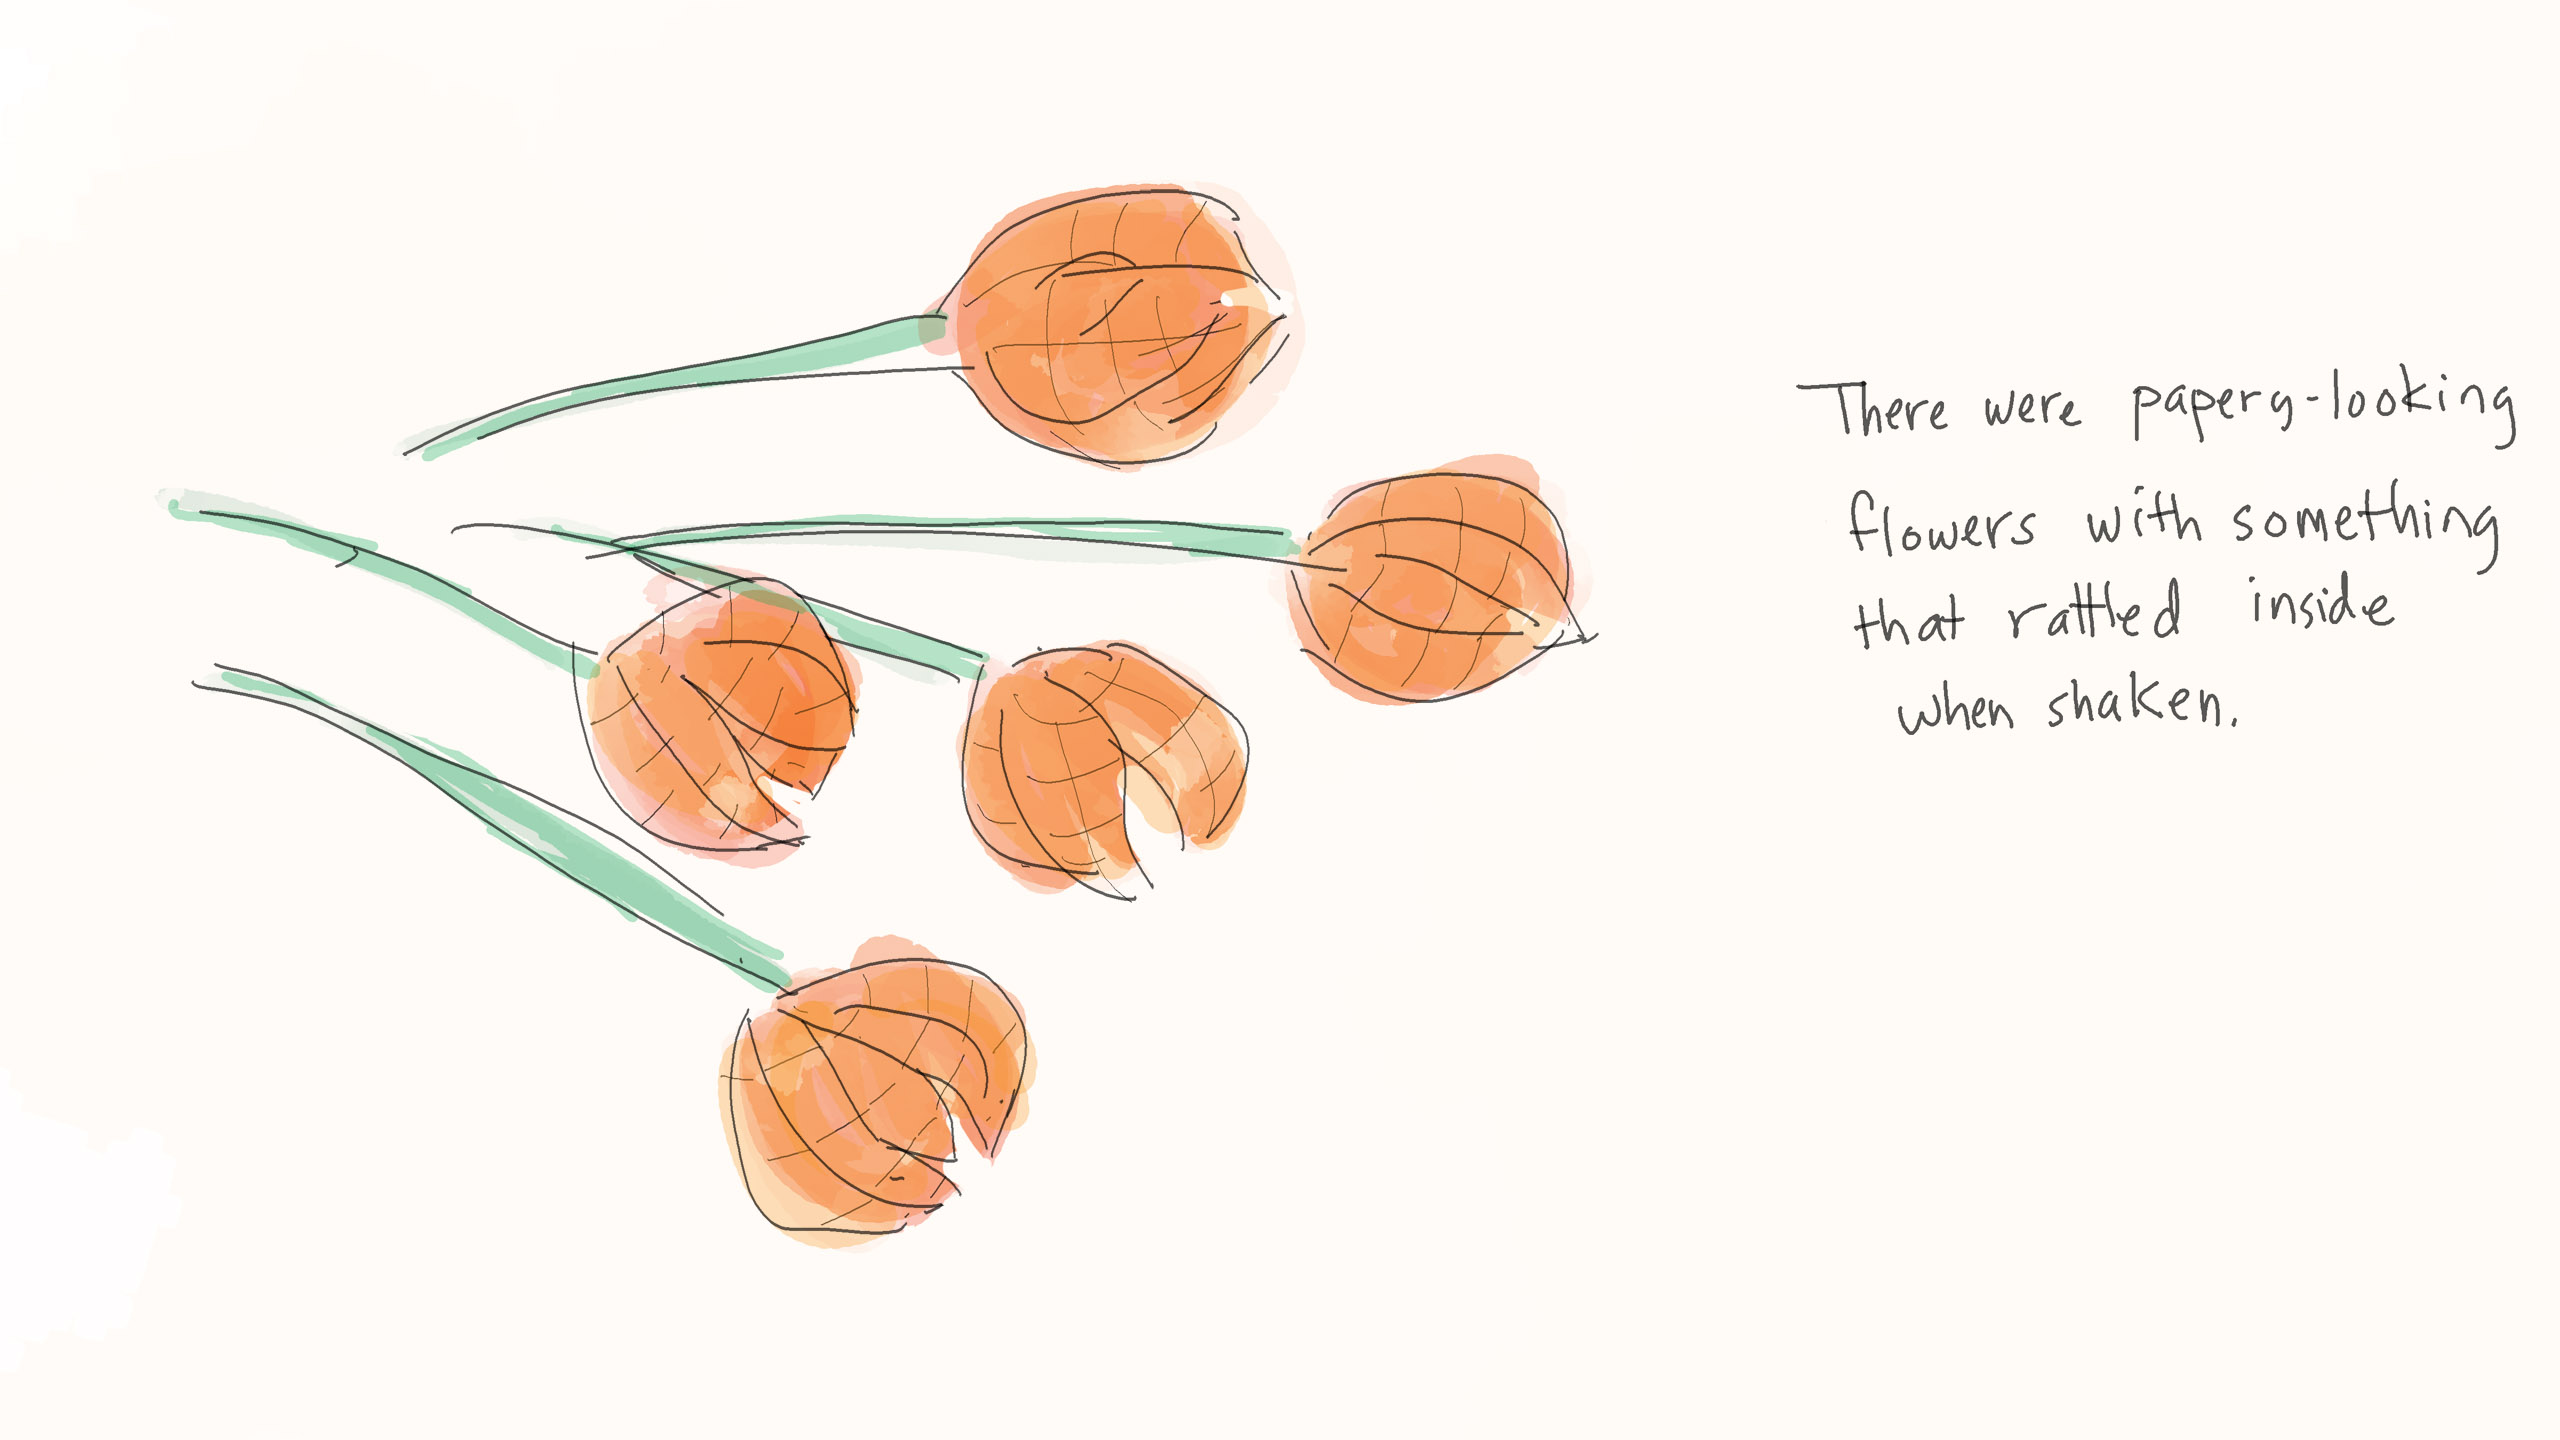 There were papery-looking
flowers with something
that rattled inside
when shaken.